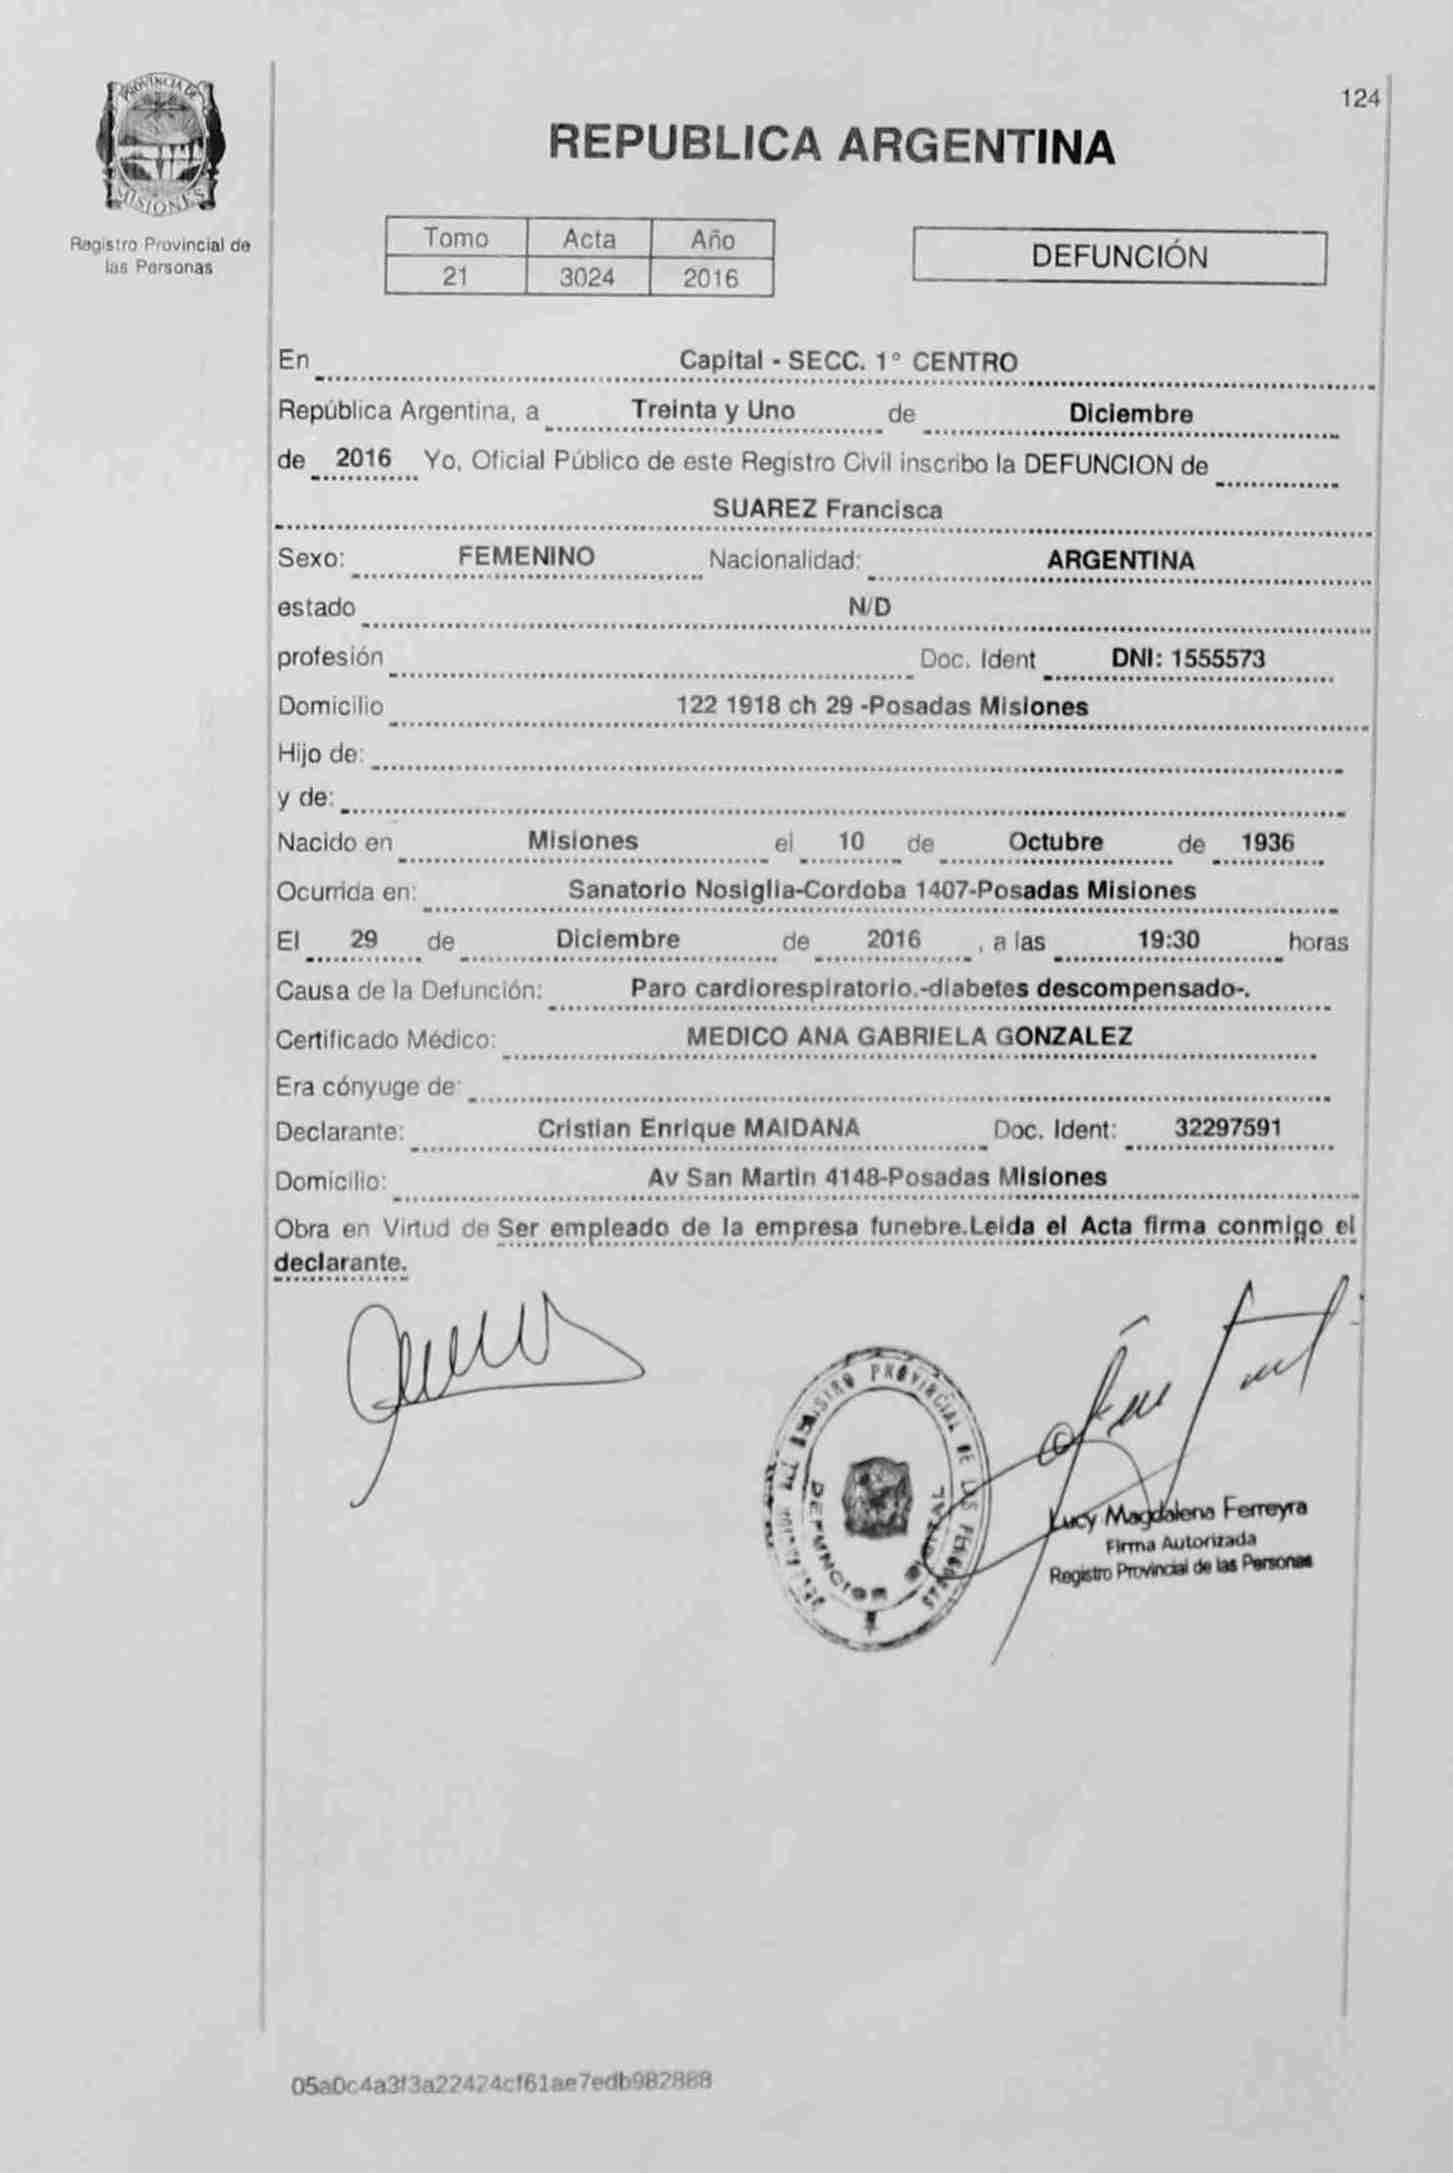 124
PROVINCIA DE
MISIONES
Registro Provincial de
las Personas
REPUBLICA ARGENTINA
Tomo Acta Año
21 3024 2016
DEFUNCIÓN
En Capital - SECC. 1° CENTRO
República Argentina, a Treinta y Uno de Diciembre
de 2016 Yo, Oficial Público de este Registro Civil inscribo la DEFUNCION de
SUAREZ Francisca
Sexo: FEMENINO Nacionalidad: ARGENTINA
estado N/D
profesión Doc. Ident DNI: 1555573
Domicilio 122 1918 ch 29 -Posadas Misiones
Hijo de:
y de:
Nacido en Misiones el 10 de Octubre de 1936
Ocurrida en: Sanatorio Nosiglia-Cordoba 1407-Posadas Misiones
El 29 de Diciembre de 2016 , a las 19:30 horas
Causa de la Defunción: Paro cardiorespiratorio.-diabetes descompensado-.
Certificado Médico: MEDICO ANA GABRIELA GONZALEZ
Era cónyuge de:
Declarante: Cristian Enrique MAIDANA Doc. Ident: 32297591
Domicilio: Av San Martin 4148-Posadas Misiones
Obra en Virtud de Ser empleado de la empresa funebre.Leida el Acta firma conmigo el
declarante.
REGISTRO PROVINCIAL DE LAS PERSONAS
DEFUNCION
Lucy Magdalena Ferreyra
Firma Autorizada
Registro Provincial de las Personas
05a0c4a3f3a22424cf61ae7edb982888